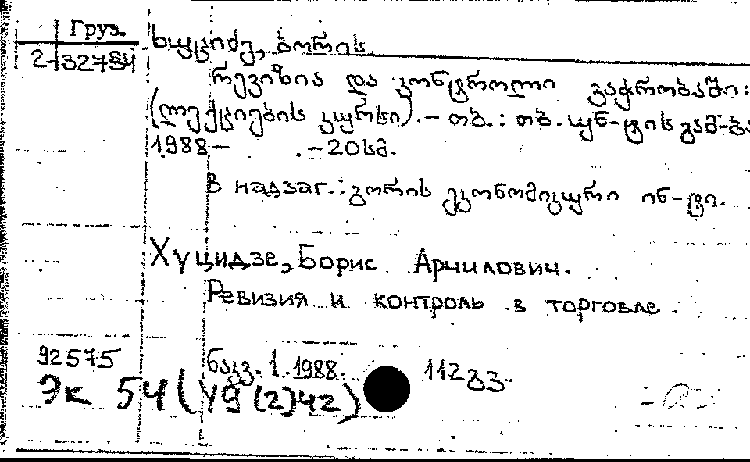 Груз.
ხუციძე, ბორის.
2-32784
რევიზია და კონტროლი ვაჭრობაში:
(ლექციების კურსი). - თბ.: თბ. უნ-ტის გამ-ბა
1988 - . - 20 სმ.
В надзаг.: გორის ეკონომიკური ინ-ტი.
Хуцидзе, Борис Арчилович.
Ревизия и контроль в торговле.
92575
ნაკვ. 1. 1988. 112 გვ.
Эк 54 (У9(2)42)